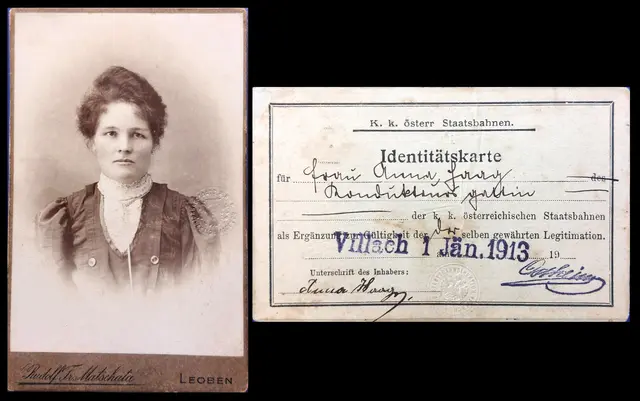 Rudolf Fr. Matschnig
LEOBEN
K. k. österr Staatsbahnen.
Identitätskarte
für Frau Anna Haag des
Kondukteurs gattin
der k. k. österreichischen Staatsbahnen
als Ergänzung zur Gültigkeit der derselben gewährten Legitimation.
Villach 1 Jän. 1913 19
Unterschrift des Inhabers:
Anna Haag